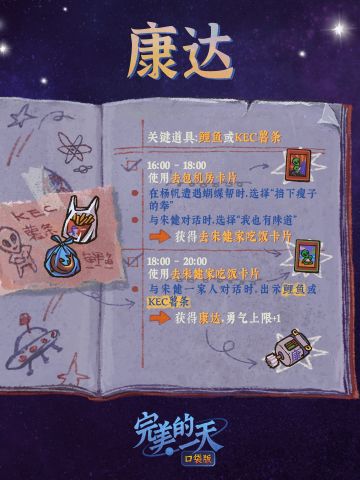 康达
关键道具:鲤鱼或KEC薯条
16:00 - 18:00
使用去包机房卡片
在杨帆遭遇蝴蝶帮时,选择“挡下瘦子
的拳”
与宋健对话时,选择“我也有味道”
获得去宋健家吃饭卡片
18:00 - 20:00
使用去宋健家吃饭卡片
与宋健一家人对话时,出示鲤鱼或
KEC薯条
获得康达,勇气上限+1
KEC
薯条
完美的一天
口袋版